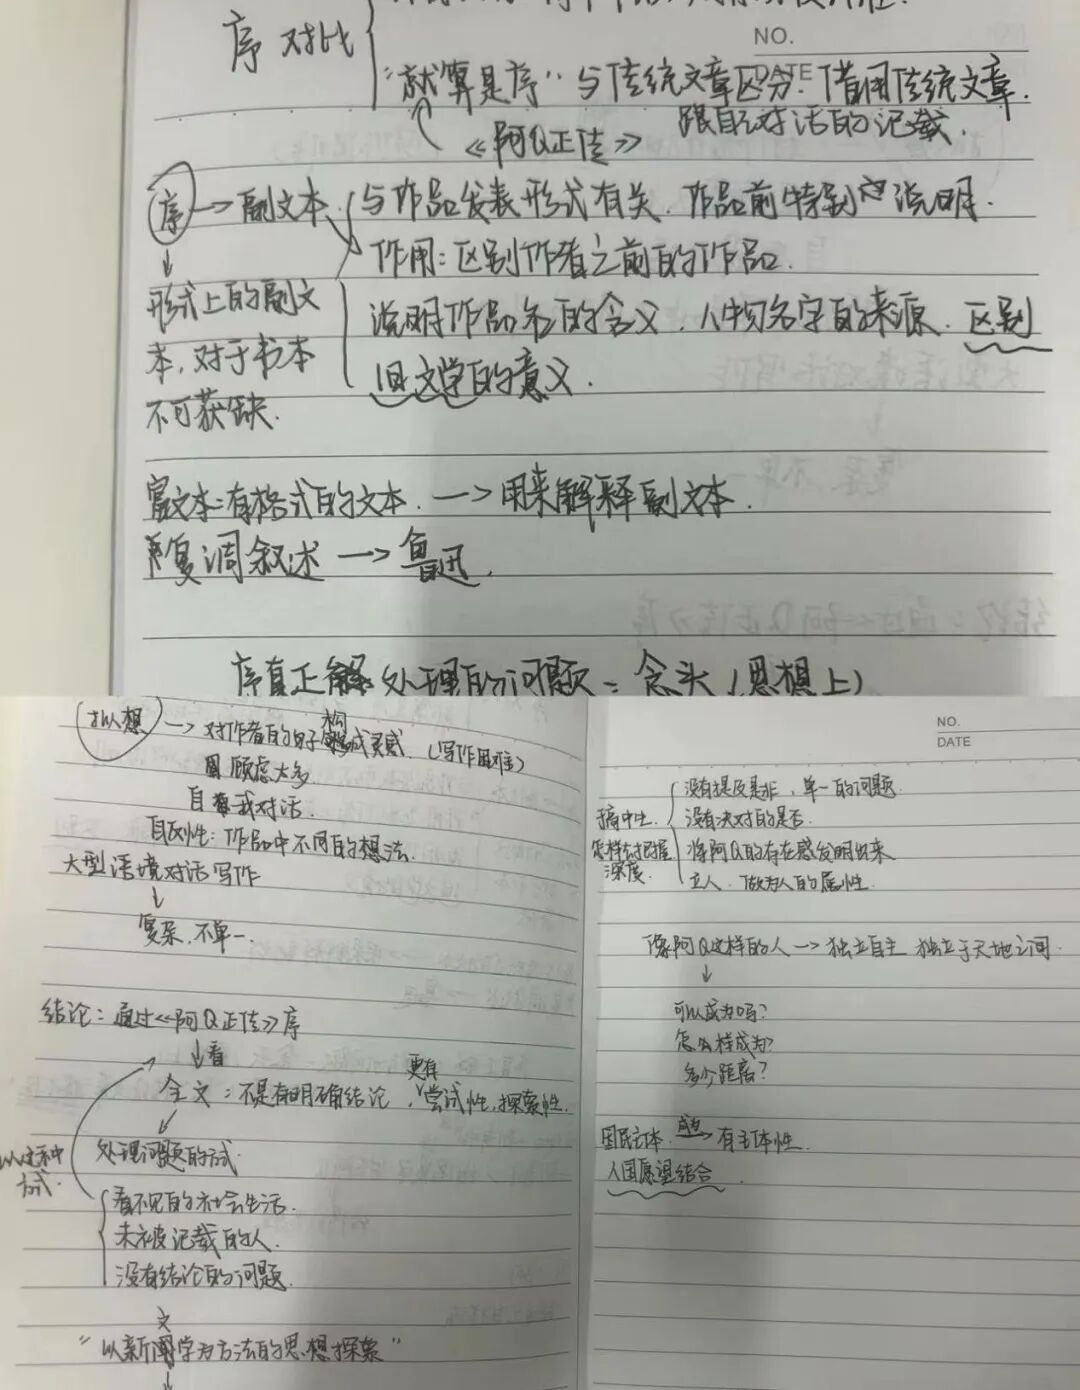 序 对比
NO.
DATE
"就算是序" 与传统文章区分. 借用传统文章.
《阿Q正传》 跟自己对话的记载.
序 → 副文本. 与作品发表形式有关. 作品前特别的说明.
作用: 区别作者之前的作品.
形式上的副文本, 对于书本不可获缺.
说明作品名的含义. 人物名字的来源. 区别
旧文学的意义.
文本: 有格式的文本. → 用来解释副文本.
复调叙述 → 鲁迅.
序真正 处理的问题 = 念头 (思想上)
拟想 → 对作者的 构成灵感. (写作困难)
顾虑太多
自我对话.
自反性: 作品中不同的想法.
大型语境对话写作
↓
复杂. 不单一.
结论: 通过《阿Q正传》序
↓看
全文: 不是有明确结论, 更有尝试性, 探索性.
处理问题的 式
以这种方式.
看不见的社会生活.
未被记载的人.
没有结论的问题.
"以新文学为方法的思想探索"
↓
NO.
DATE
没有提及是非, 单一的问题.
没有决对的是否.
怎样去把握深度.
将阿Q的存在感发明出来
立人. 做为人的属性.
像阿Q这样的人 → 独立自主 独立于天地之间.
↓
可以成为吗?
怎么样成为?
多少距离?
国民主体. → 有主体性.
人国愿望结合.